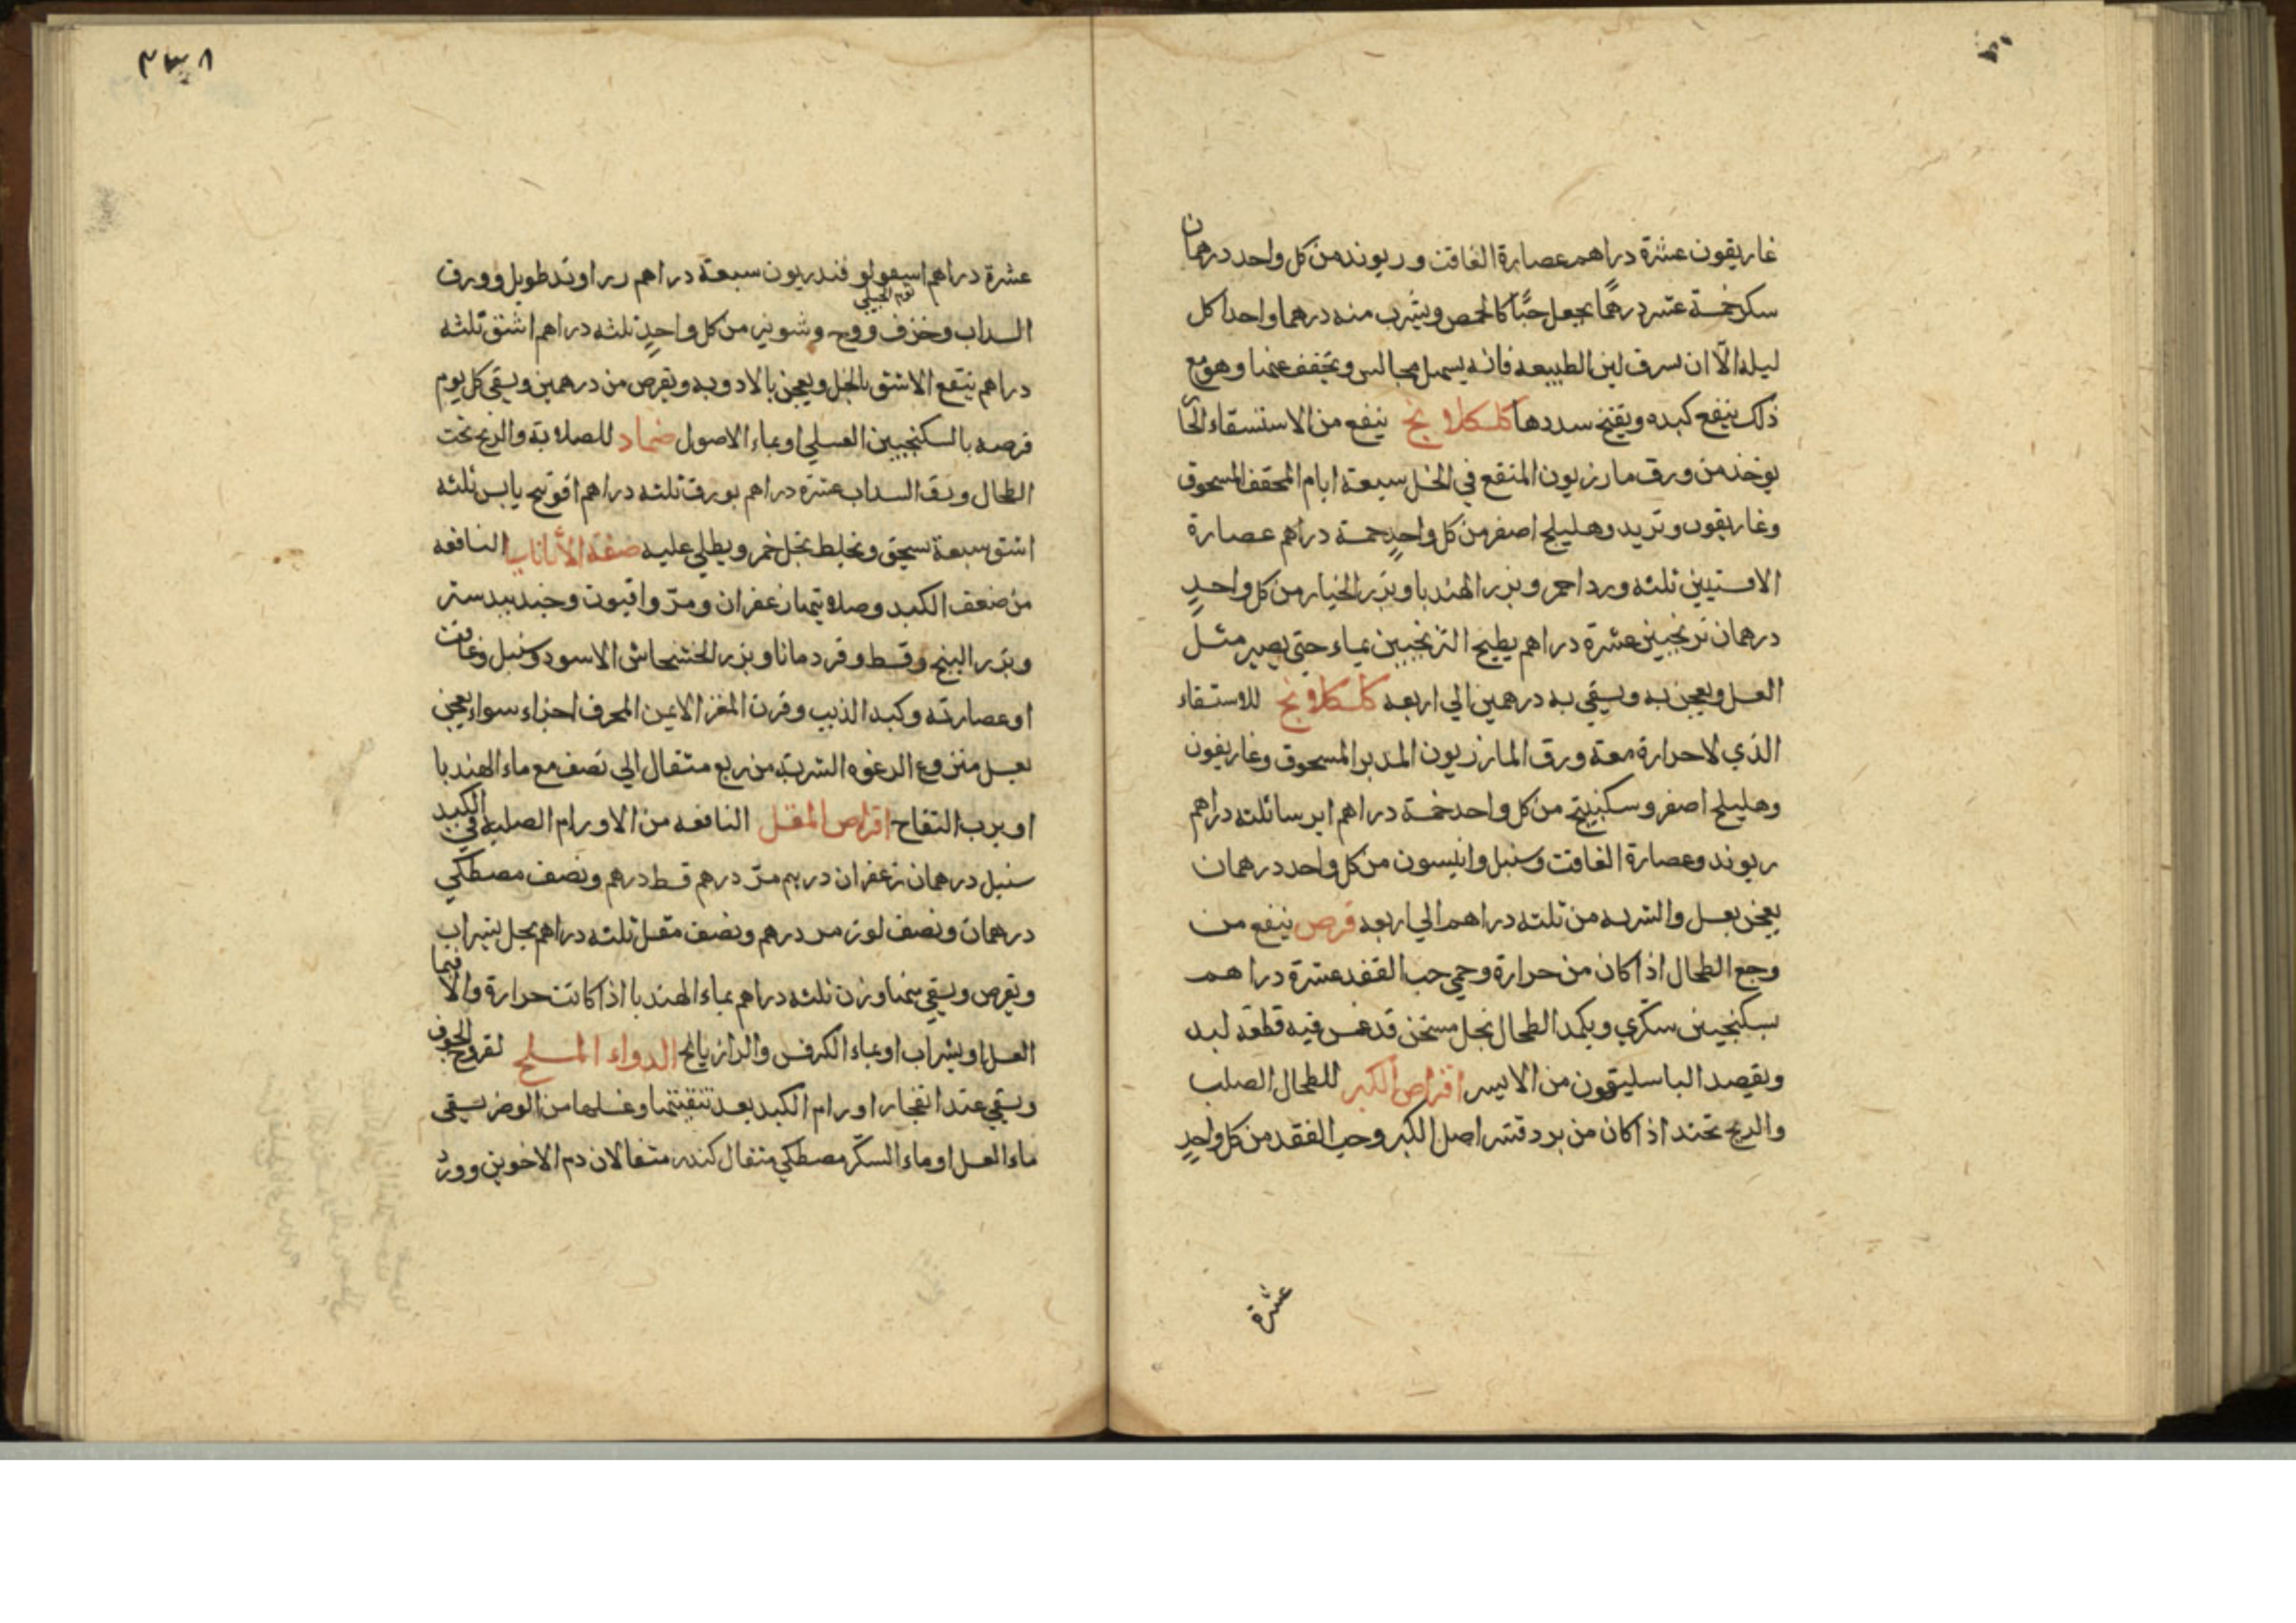 غاريقون عشرة دراهم عصارة الغافت وريوند من كل واحد درهمان
سكر خمسة عشر درهمًا يجعل حبًّا كالحمص ويشرب منه درهما واحدا كل
ليلة الّا ان يسرف لين الطبيعه فانه يسهل مجالس ويجفف عنها وهو مع
ذلك ينفع كبده ويفتح سددها كلكلانج ينفع من الاستسقاء الحار
يوخذ من ورق مازريون المنقع في الخل سبعة ايام المجفف المسحوق
وغاريقون وتربد وهليلج اصفر من كل واحدٍ خمسة دراهم عصارة
الافسنتين ثلثه ورد احمر وبزر الهندبا وبزر الخيار من كل واحدٍ
درهمان ترنجبين عشرة دراهم يطبخ الترنجبين بماء حتى يصير مثل
العسل ويعجن به ويسقي به درهمين الي اربعه كلكلانج للاستسقاء
الذي لا حرارة معه ورق المازريون المدبر المسحوق وغاريقون
وهليلج اصفر وسكبينج من كل واحد خمسة دراهم ايرسا ثلثه دراهم
ريوند وعصارة الغافت وسنبل وانيسون من كل واحد درهمان
يعجن بعسل والشربه من ثلثه دراهم الي اربعه قرص ينفع من
وجع الطحال اذا كان من حرارة وحمي حب الفقد عشرة دراهم
بسكنجبين سكّري ويكمد الطحال بخل مسخن قد غمس فيه قطعة لبد
ويفصد الباسليقون من الايسر اقراص الكبر للطحال الصلب
والريح تحته اذا كان من برد قشر اصل الكبر وحب الفقد من كل واحدٍ
عشرة
٣٣٨
عشرة دراهم اسقولوقندريون سبعة دراهم زراوند طويل وورق
السداب وحرف ووج وشونيز من كل واحدٍ ثلثه دراهم اشق ثلثه
دراهم ينقع الاشق بالخل ويعجن بالادويه ويقرص من درهمين ويسقي كل يوم
قرصه بالسكنجبين العسلي او بماء الاصول ضماد للصلابة والريح تحت
الطحال ورق السداب عشرة دراهم بورق ثلثه دراهم فوتنج يابس ثلثه
اشق سبعة يسحق ويخلط بخل خمر ويطلي عليه صفة الأثاناسيا النافعه
من ضعف الكبد وصلابتها زعفران ومرّ وافيون وجندبيدستر
وبزر البنج وقسط وقردمانا وبزر الخشخاش الاسود وسنبل وغافت
او عصارته وكبد الذيب وقرن المعز الايمن المحرق اجزاء سواء يعجن
بعسل منزوع الرغوه الشربة من ربع مثقال الي نصف مع ماء الهندبا
او برب التفاح اقراص المقل النافعه من الاورام الصلبه في الكبد
سنبل درهمان زعفران درهم مرّ درهم قسط درهم ونصف مصطكي
درهمان ونصف لوز مر درهم ونصف مقل ثلثه دراهم يحل بشراب
ويقرص ويسقي منها وزن ثلثه دراهم بماء الهندبا اذا كانت حرارة والا فبماء
العسل او بشراب او بماء الكرفس والرازيانج الدواء الملحم لقروح الجوف
ويسقي عند انفجار اورام الكبد بعد تنقيتها وغسلها من الوضر يسقي
ماء العسل او ماء السكّر مصطكي مثقال كندر مثقالان دم الاخوين وورد